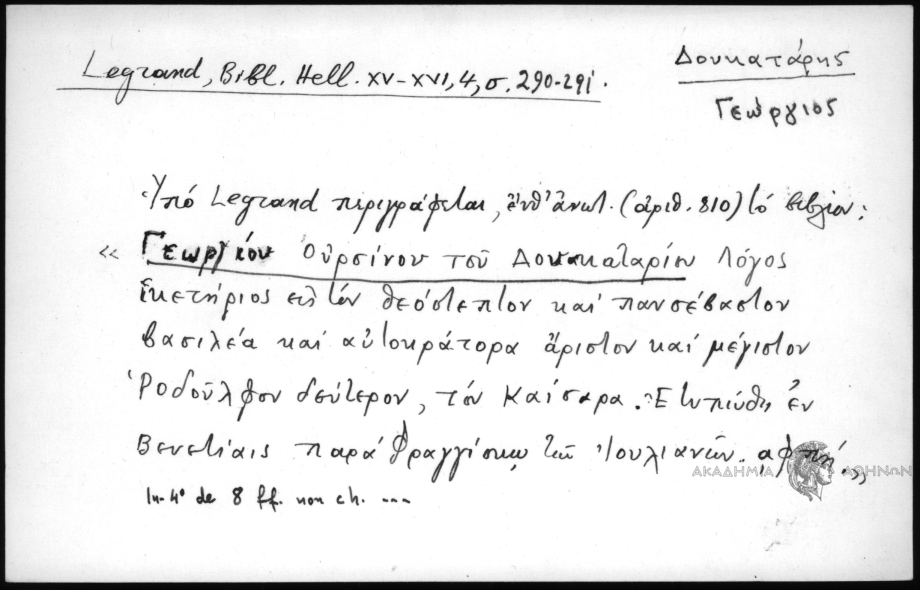 Legrand, Bibl. Hell. XV-XVI, 4, σ. 290-291.
Δουκατάρης
Γεώργιος
Ὑπό Legrand περιγράφεται, ἔνθ' ἀνωτ. (ἀριθ. 810) τό βιβλίον:
« Γεωργίου Οὐρσίνου τοῦ Δουκαταρίου Λόγος
ἱκετήριος εἰς τόν θεόστεπτον καί πανσέβαστον
βασιλέα καί αὐτοκράτορα ἄριστον καί μέγιστον
Ῥοδοῦλφον δεύτερον, τόν Καίσαρα. Ἐτυπώθη ἐν
Βενετίαις παρά Φραγγίσκῳ τῶν Ἰουλιανῶν. αφπή. »
In-4° de 8 ff. non ch. ---
ΑΚΑΔΗΜΙΑ ΑΘΗΝΩΝ